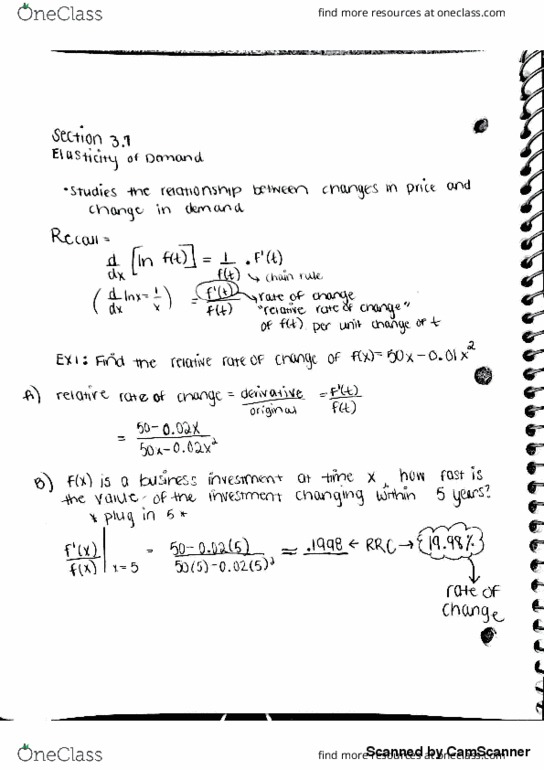 OneClass
find more resources at oneclass.com
Section 3.7
Elasticity of Demand
• Studies the relationship between changes in price and
change in demand
Recall =
d/dx [ln f(t)] = 1/f(t) · f'(t)
↳ chain rule
(d/dx lnx = 1/x) = f'(t)/f(t) → rate of change
"relative rate of change"
of f(t) per unit change of t
EX1: Find the relative rate of change of f(x) = 50x - 0.01x²
A) relative rate of change = derivative/original = f'(t)/f(t)
= 50-0.02x / 50x-0.02x²
B) f(x) is a business investment at time x, how fast is
the value of the investment changing within 5 years?
* plug in 5 *
f'(x)/f(x) | x=5 = 50-0.02(5) / 50(5)-0.02(5)² = .1998 ← RRC → 19.98%
rate of
change
OneClass
find more resources at oneclass.com
Scanned by CamScanner